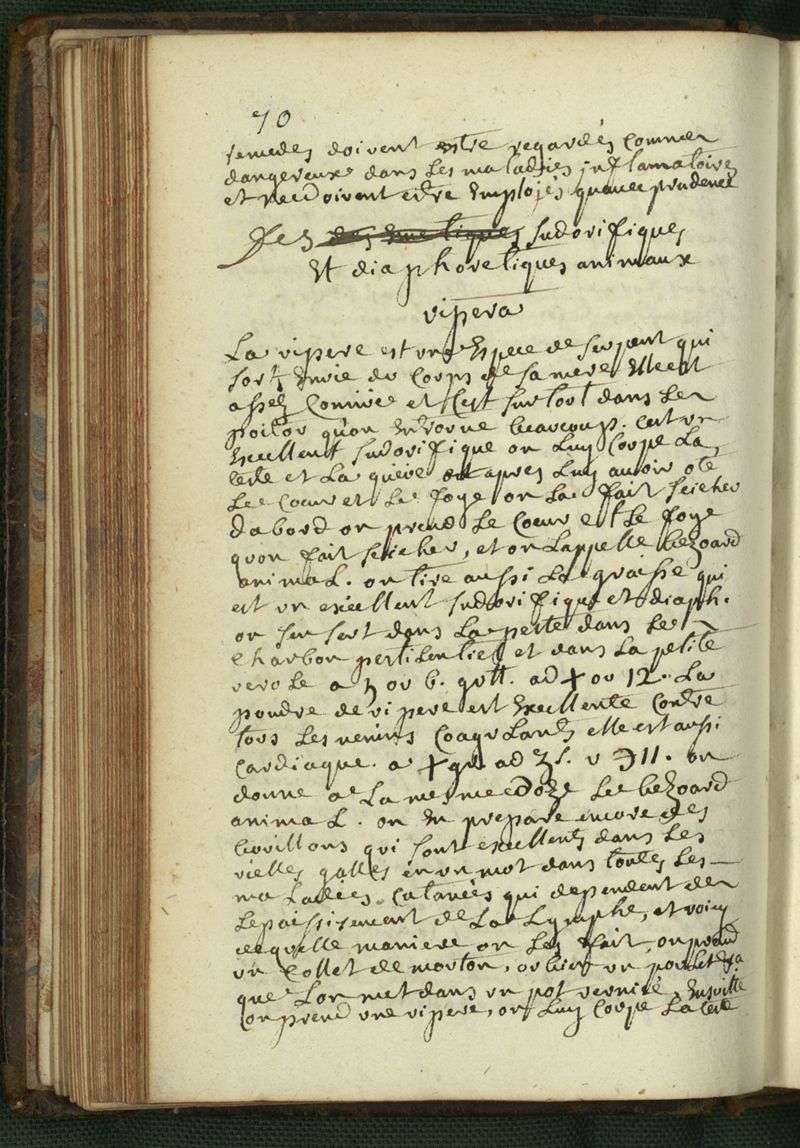 70
remedes doivent estre regardés comme
dangereux dans les maladies inflamatoires
et ne doivent estre employés quavec prudence
Des des emetiques sudorifiques
Et diaphoretiques animaux
vipera
La vipere est une Espece de serpent qui
sort En vie du Corps de sa mere Elle est
assez Comune et C'est surtout dans le
poitou qu'on En trouve beaucoup. C'est un
Excellent sudorifique on Luy Coupe La
teste et La queüe et apres Luy avoir oté
Le Coeur et Le foye on La fait seicher
Dabord on prend Le Coeur et Le foye
quon fait seicher, et on Lappelle bezoard
animaL. on tire aussi La graisse qui
est un excellent sudorifique et diaph.
on sen sert dans La peste dans Le
Charbon pestilentiel et dans La petite
verole a 5 ou 6. gutt. ad + ou 12. La
poudre de vipere est Excellente Contre
tous Les venins Coagulants elle est aussi
Cardiaque. a + gr. ad ʒ s. v ℈ 11. on
donne a La mesme doze Le bezoard
animaL. on En prepare encore des
boüillons qui sont excellents dans Les
vielles galles en un mot dans toutes Les
maLadies Cutanées qui dependent de
Lepaissisement de La Lymphe, et voicy
de quelle maniere on Les fait, on prend
un Collet de mouton, ou bien un poulet
que Lon met dans un pot vernicé, Ensuitte
on prend une vipere, on Luy Coupe La teste